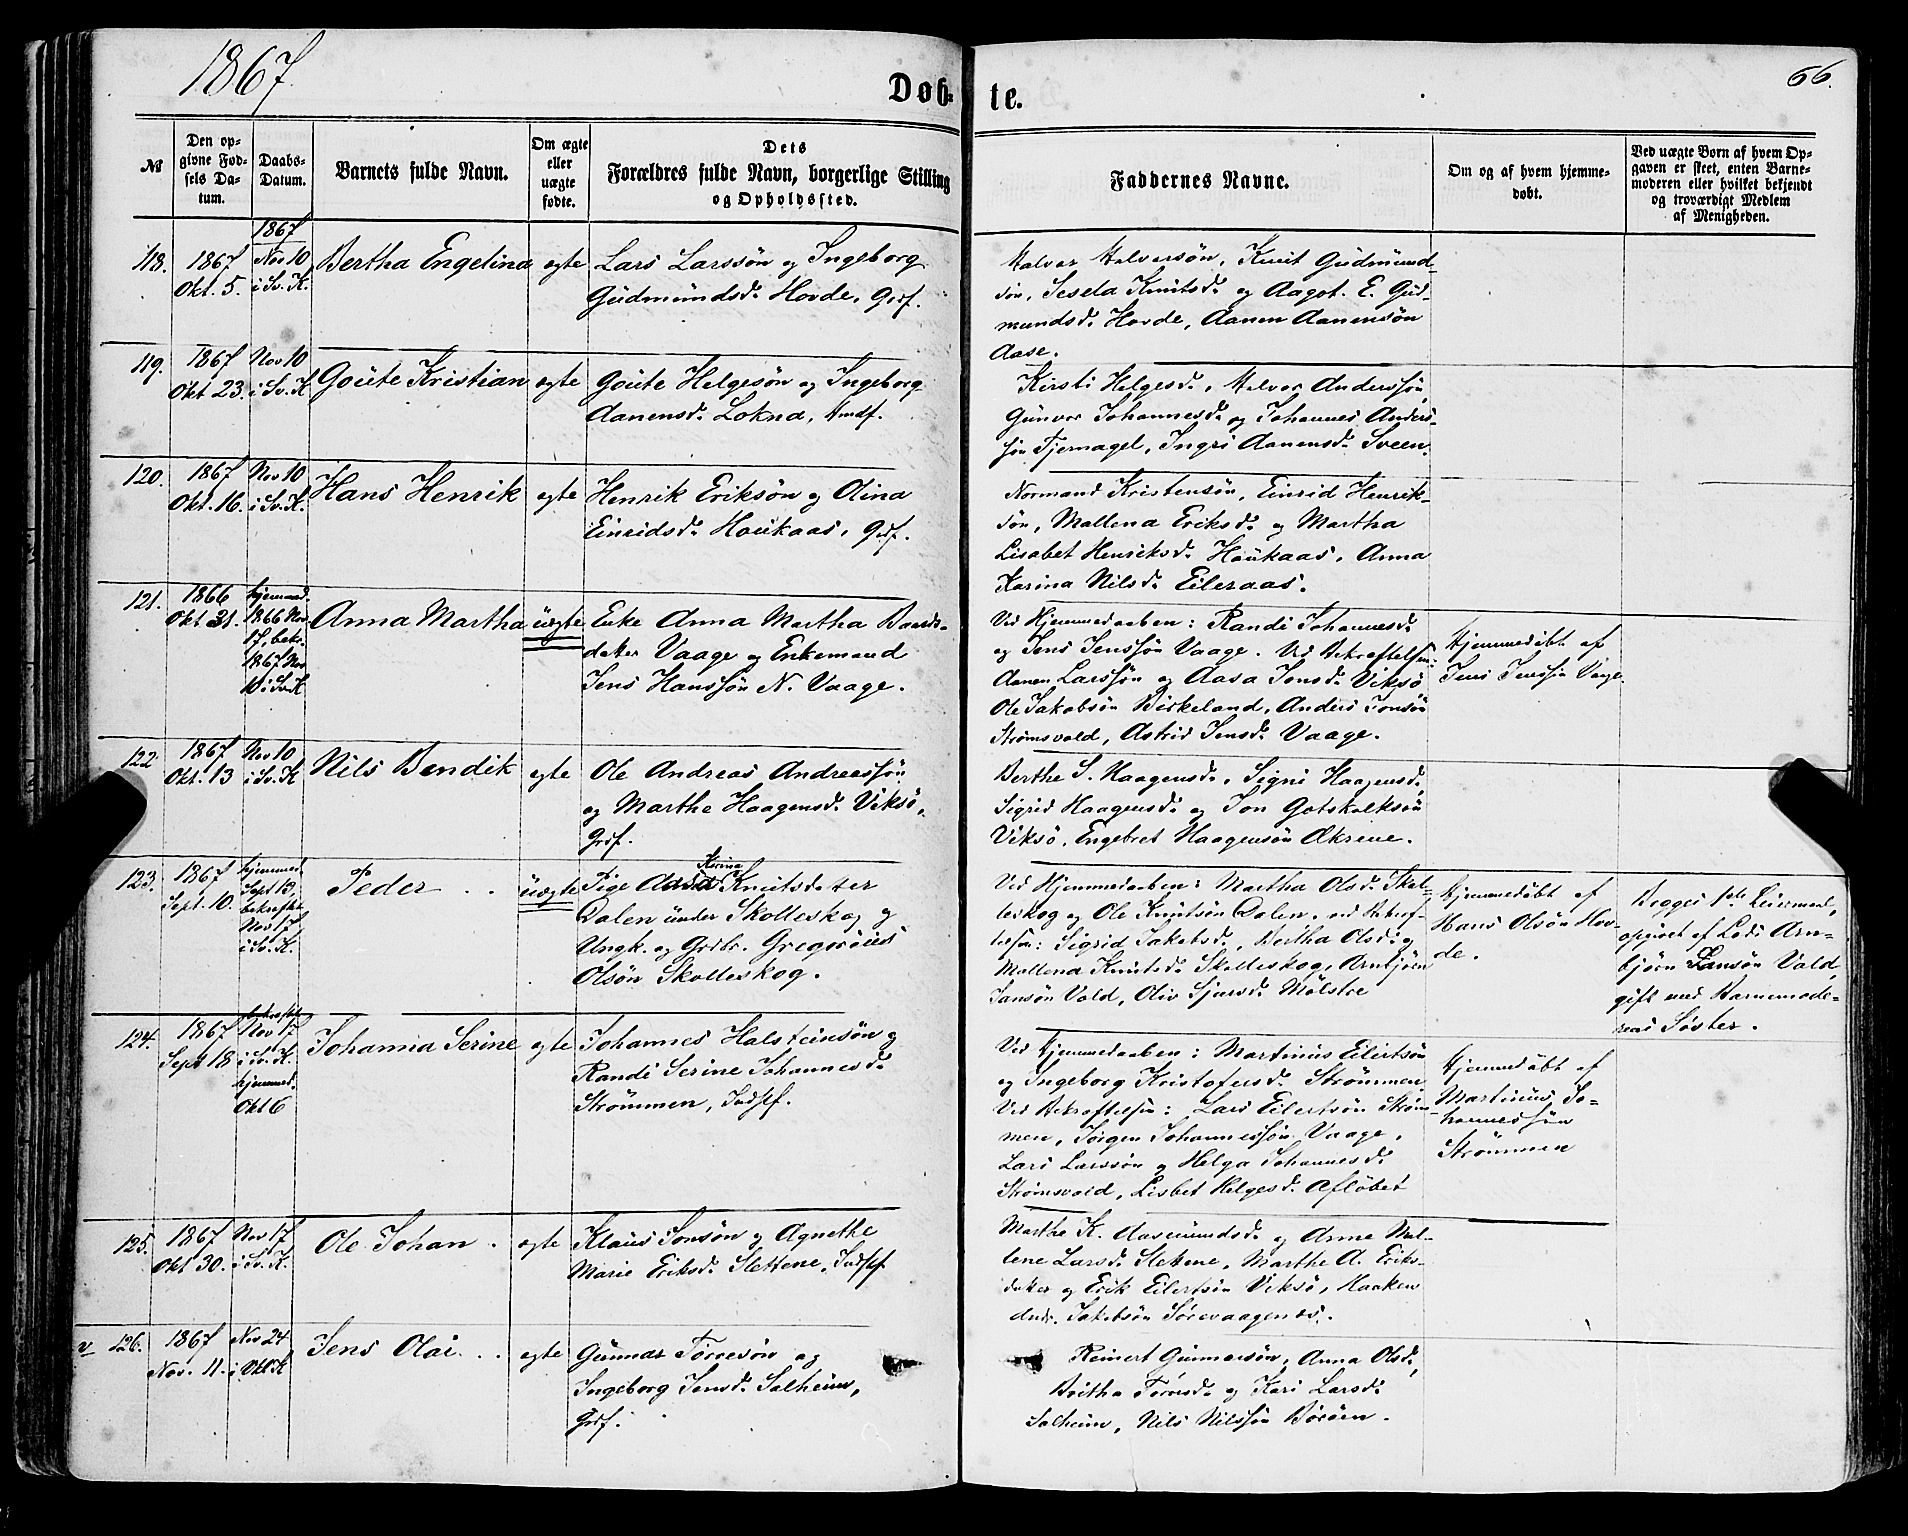 1867.
Døb-
te.
66.
№
Den op-
givne Fød-
sels Da-
tum.
Daabs-
Datum.
Barnets fulde Navn.
Om ægte
eller
uægte
fødte.
Dets
Forældres fulde Navn, borgerlige Stilling
og Opholdssted.
Faddernes Navne.
Om og af hvem hjemme-
døbt.
Ved uægte Børn af hvem Op-
gaven er skeet, enten Barne-
moderen eller hvilket bekjendt
og troværdigt Medlem
af Menigheden.
118.
1867
Okt. 5.
1867
Nov 10
i Sv. K.
Bertha Engelina
egte
Lars Larssøn og Ingeborg
Gudmundsd. Hovde, Grdf.
Halvor Halvorsøn, Knut Gudmund-
søn, Sesela Knutsd. og Aagot. E. Gud-
mundsd. Hovde, Aanen Aanensøn
Aase.
119.
1867
Okt 23.
Nov 10
i Sv. K
Goute Kristian
egte
Goute Helgesøn og Ingeborg
Aanensd. Lokna,
Kirsti Helgesd., Halvor Anderssøn,
Gunvor Johannesd. og Johannes Anders-
søn Tjernagel, Ingri Aanensd. Sveen.
120.
1867
Okt. 16.
Nov 10
i Sv. K.
Hans Henrik
egte
Henrik Eriksøn og Olina
Einridsd. Houkaas, Grdf.
Normand Kristensøn, Einrid Henrik-
søn, Mallena Eriksd. og Martha
Lisabet Henriksd. Houkaas, Anna
Karina Nilsd. Eileraas.
121.
1866
Okt 31.
hjemmed.
1866 Nov
17, bekr.
1867 Nov
10 i Sv. K
Anna Martha
uegte
Enke Anna Martha Baards-
datter Vaage og Enkemand
Jens Hanssøn N. Vaage.
Ved Hjemmedaaben: Randi Johannesd.
og Jens Jenssøn Vaage. Ved Bekræftelsen:
Aanen Larssøn og Aasa Jonsd. Viksø
Ole Jakobsøn Birkeland, Anders Jonsøn
Strømsvold, Astrid Jensd. Vaage.
Hjemmedøbt af
Jens Jenssøn Vaage.
122
1867
Okt. 13
Nov 10
i Sv. K
Nils Bendik
egte
Ole Andreas Andreassøn
og Marthe Haagensd. Viksø,
Grdf.
Berthe S. Haagensd., Signi Haagensd.,
Sigrid Haagensd. og Jon Gotskalksøn
Viksø, Engebret Haagensøn Økrene.
123.
1867
Sept. 10.
hjemmed.
Sept 13,
bekræftet
Nov 17
i Sv. K.
Peder . .
uegte
Karina
Pige Aasa Knutsdatter
Dalen under Skolleskog og
Ungk. og Grdbr. Gregorius
Olsøn Skolleskog.
Ved Hjemmedaaben: Martha Olsd. Skol-
leskog og Ole Knutsøn Dalen. ved Bekræf-
telsen: Sigrid Jakobsd., Bertha Olsd. og
Mallena Knutsd. Skolleskog, Arnbjørn
Jansøn Vold, Oliv Sjursd. Mølstre
Hjemmedøbt af
Hans Olsøn Hov-
de.
Begges 1ste Leiermaal,
opgivet af Lods Arn-
bjørn Jansøn Vold,
gift med Barnemode-
rens Søster.
124.
1867
Sept 18
bekræftet
Nov 17
i Sv. K.
hjemmed.
Okt 6
Johanna Serine
egte
Johannes Halsteinsøn og
Randi Serine Johannesd.
Strømmen, Indsf.
Ved Hjemmedaaben: Martinus Eilertsøn
og Ingeborg Kristofersd. Strømmen.
Ved Bekræftelsen: Lars Eilertsøn Strøm-
men, Jørgen Johannessøn Vaage,
Lars Larssøn og Helga Johannesd.
Strømsvold, Lisbet Helgesd. Afløbet
Hjemmedøbt af
Martinus Jo-
hannessøn
Strømmen
125.
1867
Okt 30.
Nov 17
i Sv. K.
Ole Johan .
egte
Klaus Jonsøn og Agnethe
Marie Eriksd. Slettene, Indsf
Marthe K. Aasemundsd. og Anne Mal-
lene Larsd. Slettene, Marthe A. Eriks-
datter og Erik Eilertsøn Viksø, Haaken
Jakobsøn Sørevaagenes.
v
126.
1867
Nov. 11.
Nov 24
i K
Jens Olai . .
egte
Gunnar Torresøn og
Ingeborg Jensd. Salheim,
Grdf.
Reinert Gunnarsøn, Anna Olsd.,
Britha Torresd. og Kari Larsd.
Salheim, Nils Nilssøn Børøen.